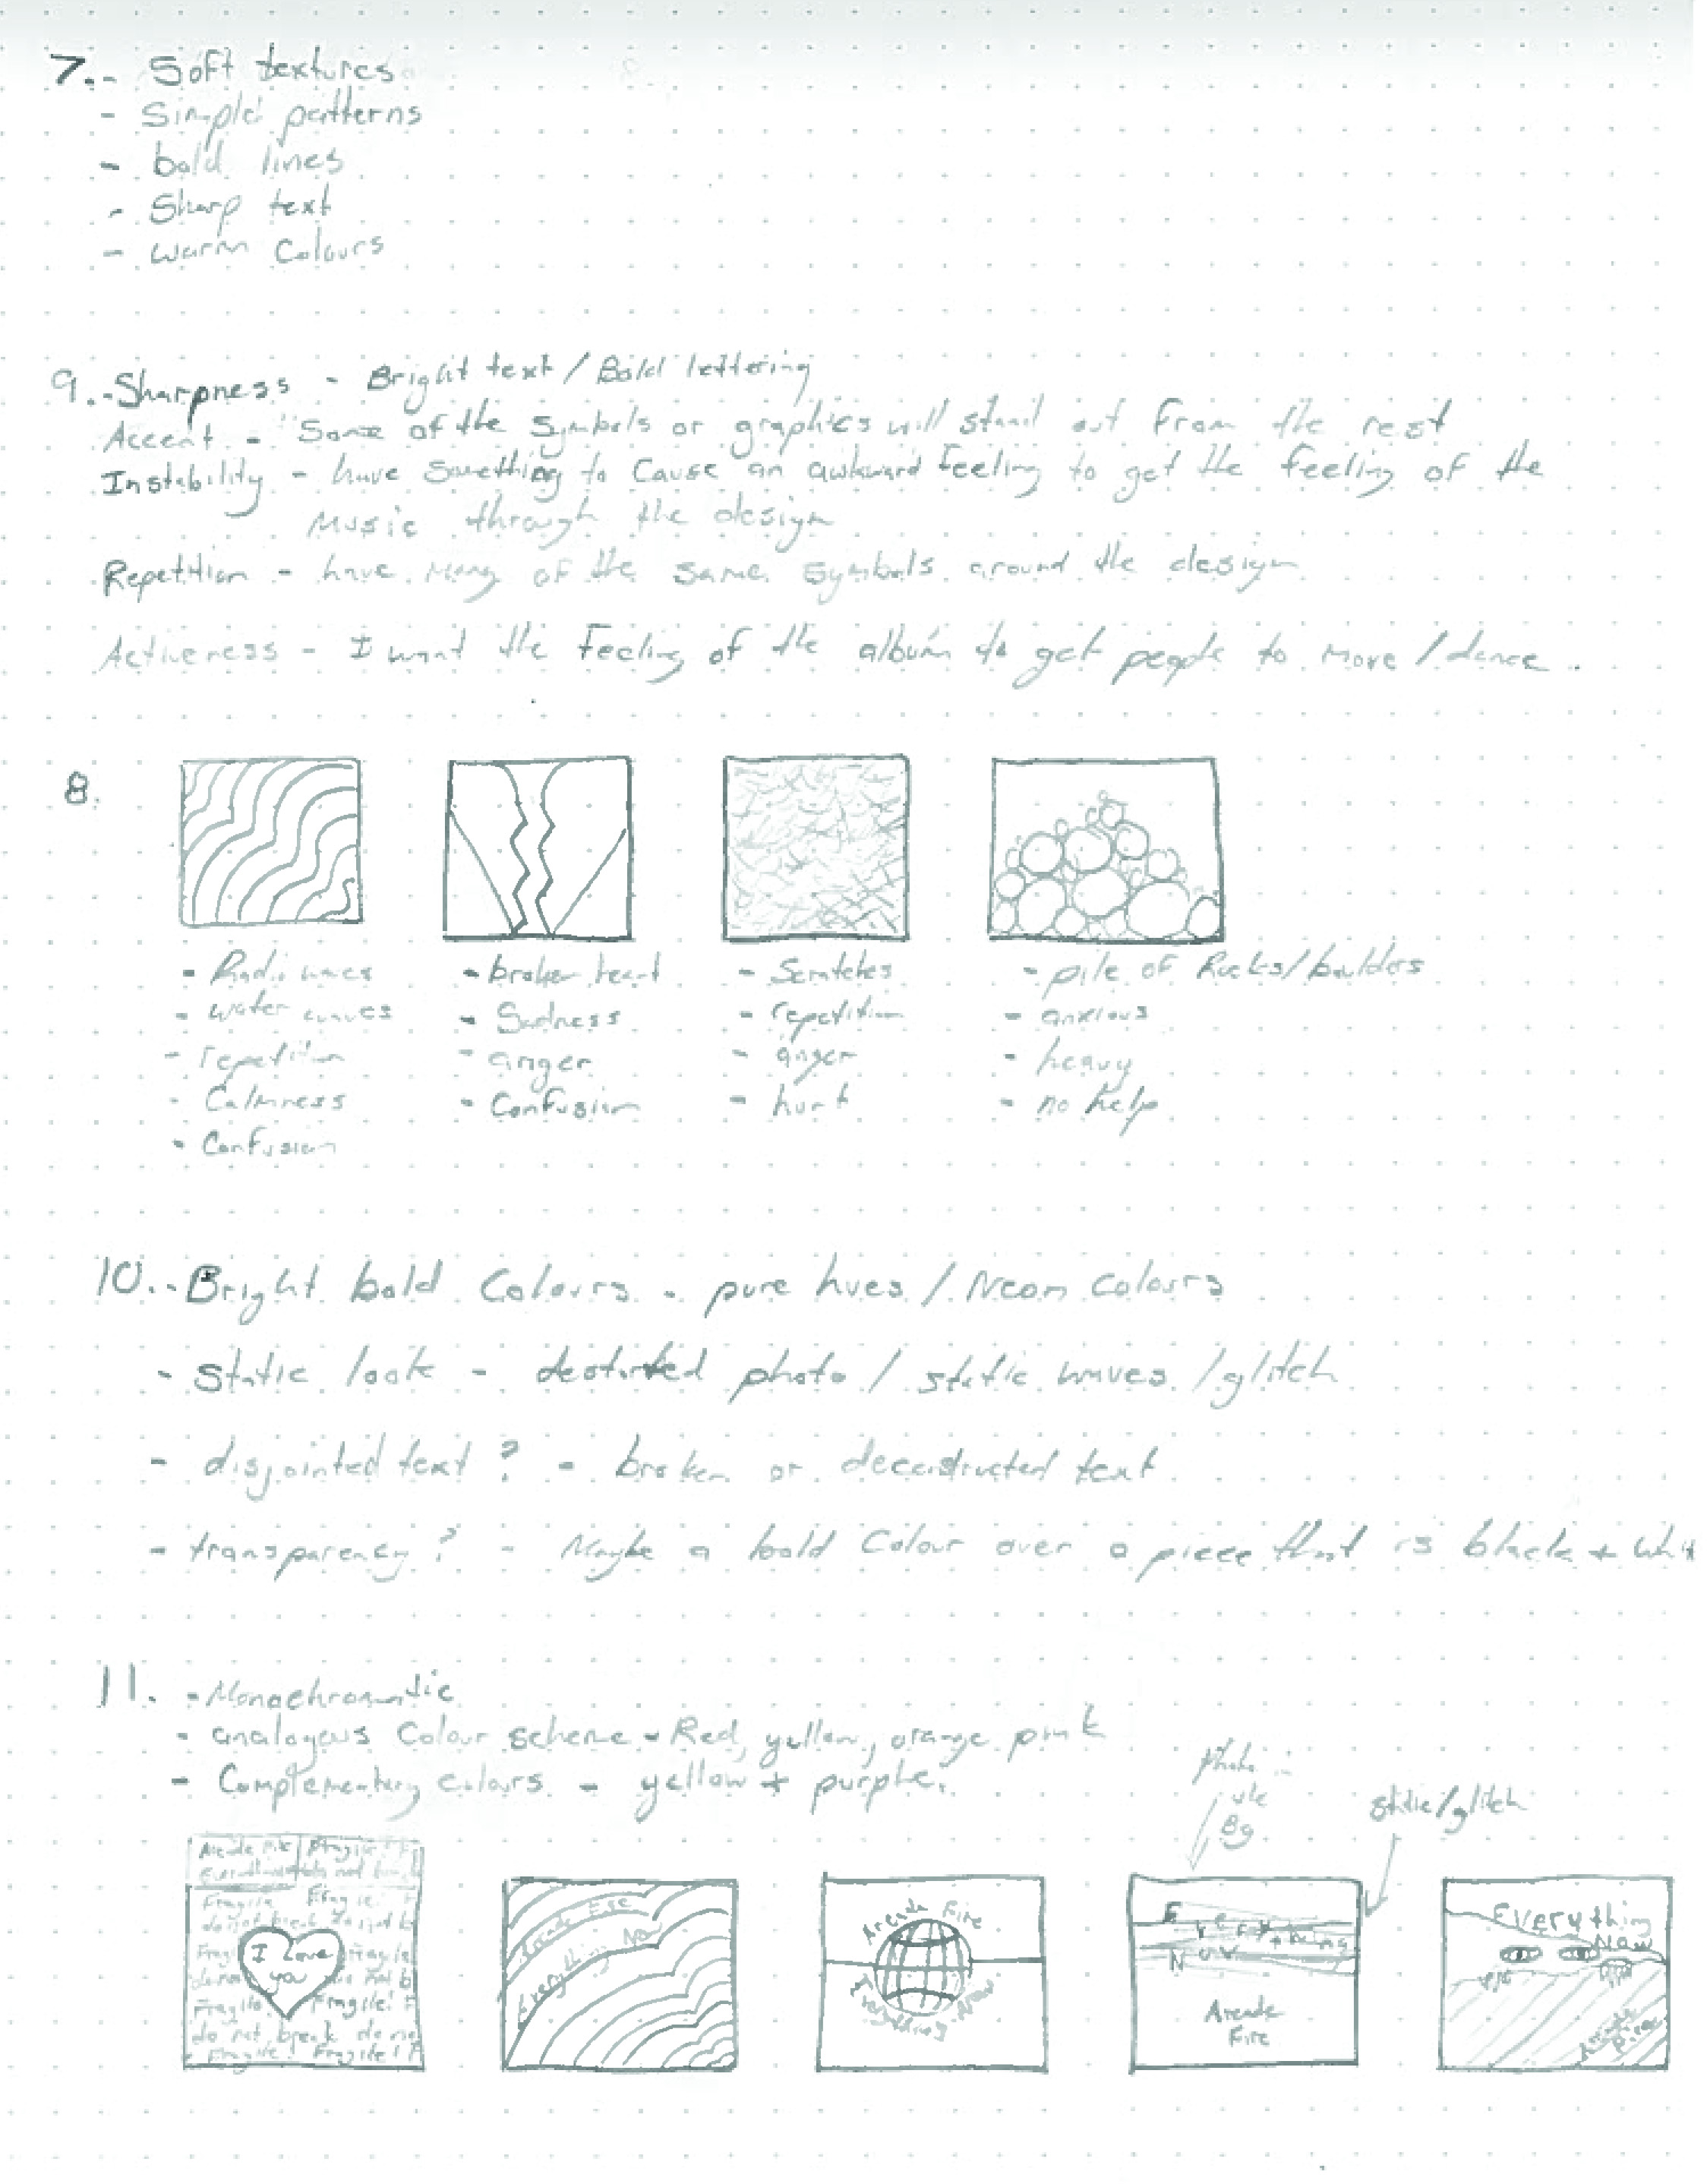 7. - Soft textures
- Simple patterns
- bold lines
- Sharp text
- Warm Colours
9. - Sharpness - Bright text / Bold lettering
Accent - Some of the Symbols or graphics will stand out from the rest
Instability - have Something to Cause an awkward feeling to get the feeling of the
Music through the design
Repetition - have many of the same Symbols around the design
Activeness - I want the Feeling of the album to get people to move / dance.
8.
- Radio waves
- water waves
- repetition
- Calmness
- Confusion
- broken heart
- Sadness
- anger
- Confusion
- Scratches
- repetition
- anger
- hurt
- pile of Rocks/boulders
- anxious
- heavy
- no help
10. - Bright bold Colours - pure hues / Neon Colours
- static look - destorted photo / static waves / glitch
- disjointed text? - broken or decconstructed text
- transparency? - Maybe a bold Colour over a piece that is black + whi
11. - Monochromatic
- analogous Colour scheme - Red, yellow, orange pink
- Complementary colours - yellow + purple.
photo in
the
Bg
static/glitch
Fragile! F
Fragile Fragile! F
do not break do not b
I Love
you
Fragile! Fragile! F
do not break do no
Fragile! Fragile! F
Arcade Fire
Everything Now
Arcade Fire
Everything Now
Everything
Now
Arcade
Fire
Everything
Now